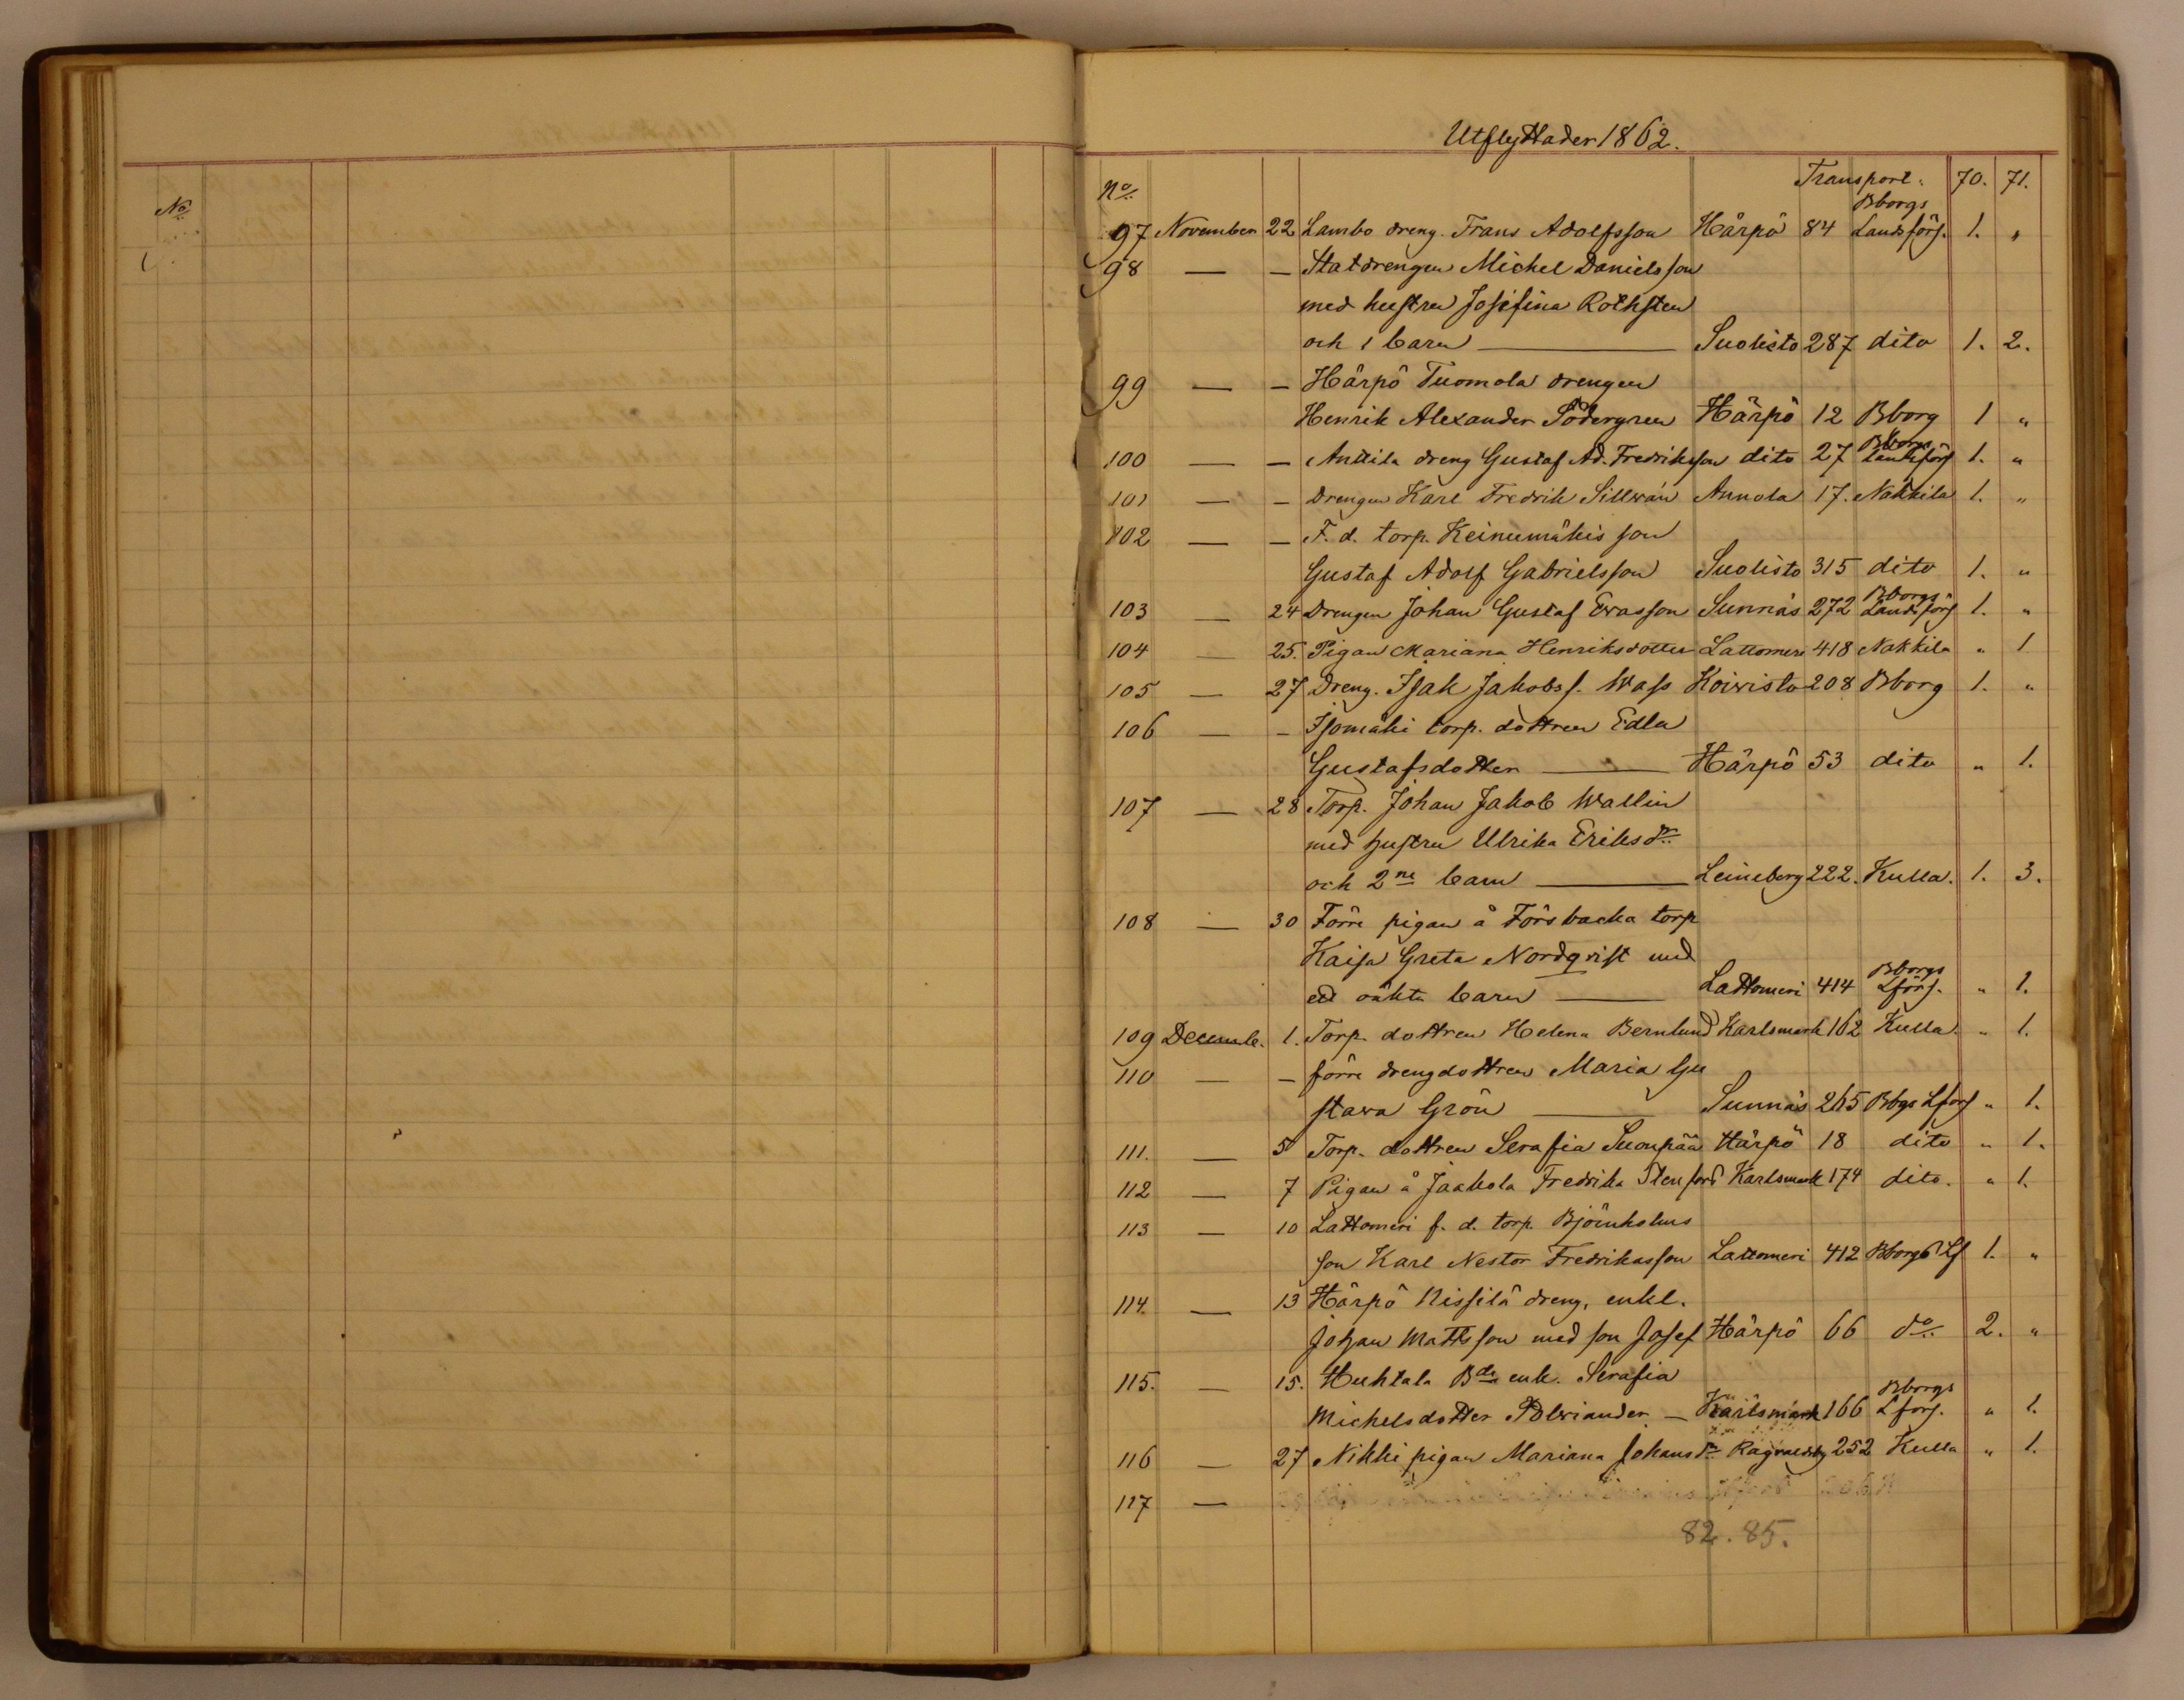 No
Utflyttader 1862.
No Transport: 70. 71.
97 November 22 Lambo dreng. Frans Adolfsson Härpö 84 Bborgs Landsförs. 1. "
98 — — Statdrengen Michel Danielsson
med hustru Josefina Rothsten
och 1 barn — Suolisto 287 dito 1. 2.
99 — — Härpö Tuomola drengen
Henrik Alexander Södergren Härpö 12 Bborg 1 "
100 — — Anttila dreng Gustaf Ad. Fredriksson dito 27 Bborgs Landsförs 1. "
101 — — Drengen Karl Fredrik Sillwán Annola 17. Nakkila 1. "
102 — — F. d. torp. Keinumäkis son
Gustaf Adolf Gabrielsson Suolisto 315 dito 1. "
103 — 24 Drengen Johan Gustaf Evasson Sunnäs 272 Bborgs Landsförs 1. "
104 — 25. Pigan Mariana Henriksdotter Lattomeri 418 Nakkila " 1
105 — 27 Dreng. Isak Jakobs s. Wass Koivisto 208 Bborg 1. "
106 — — Isomäki torp. dottren Edla
Gustafsdotter — Härpö 53 dito " 1.
107 — 28 Torp. Johan Jakob Wallin
med hustru Ulrika Eriksdr.
och 2ne barn — Leineberg 222. Kulla. 1. 3.
108 — 30 Förre pigan å Förs backa torp
Kaisa Greta Nordqvist med
ett oäkta barn — Lattomeri 414 Bborgs Lförs. " 1.
109 Decemb. 1. Torp. dottren Helena Bernlund Karlsmark 162 Kulla " 1.
110 — — förre drengdottren Maria Gu
stava Grön — Sunnäs 265 Bbgs Lförs " 1.
111. — 5 Torp. dottren Serafia Suonpää Härpö 18 dito " 1.
112 — 7 Pigan å Jaakola Fredrika Stenfors Karlsmark 174 dito. " 1.
113 — 10 Lattomeri f. d. torp. Björnkshus
son Karl Nestor Fredrikasson Lattomeri 412 Bborgs Lf 1. "
114. — 13 Härpö Nissilä dreng, enkl.
Johan Mattsson med son Josef Härpö 66 do. 2. "
115. — 15. Huhtala Bde enk. Serafia
Michelsdotter Polviander — Karlsmark 166 Bborgs Lförs. " 1.
116 — 27 Nikki pigan Mariana Johansdr. Ragvaldsby 252 Kulla " 1.
117 —
82. 85.